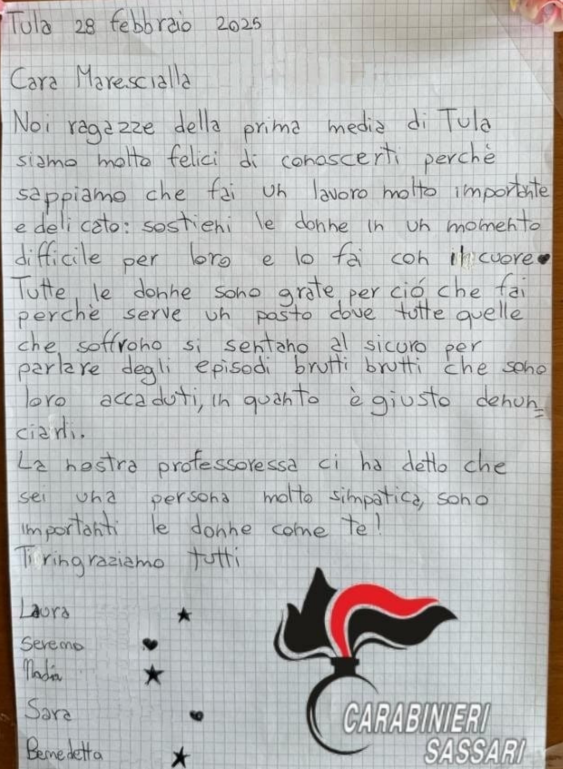 Tula 28 febbraio 2025
Cara Marescialla
Noi ragazze della prima media di Tula
siamo molto felici di conoscerti perchè
sappiamo che fai un lavoro molto importante
e delicato: sostieni le donne in un momento
difficile per loro e lo fai con il cuore
Tutte le donne sono grate per ció che fai
perchè serve un posto dove tutte quelle
che soffrono si sentano al sicuro per
parlare degli episodi brutti brutti che sono
loro accaduti, in quanto è giusto denun=
ciarli.
La nostra professoressa ci ha detto che
sei una persona molto simpatica, sono
importanti le donne come te!
Ti ringraziamo tutti
Laura
Nadia
Sara
Benedetta
CARABINIERI
SASSARI